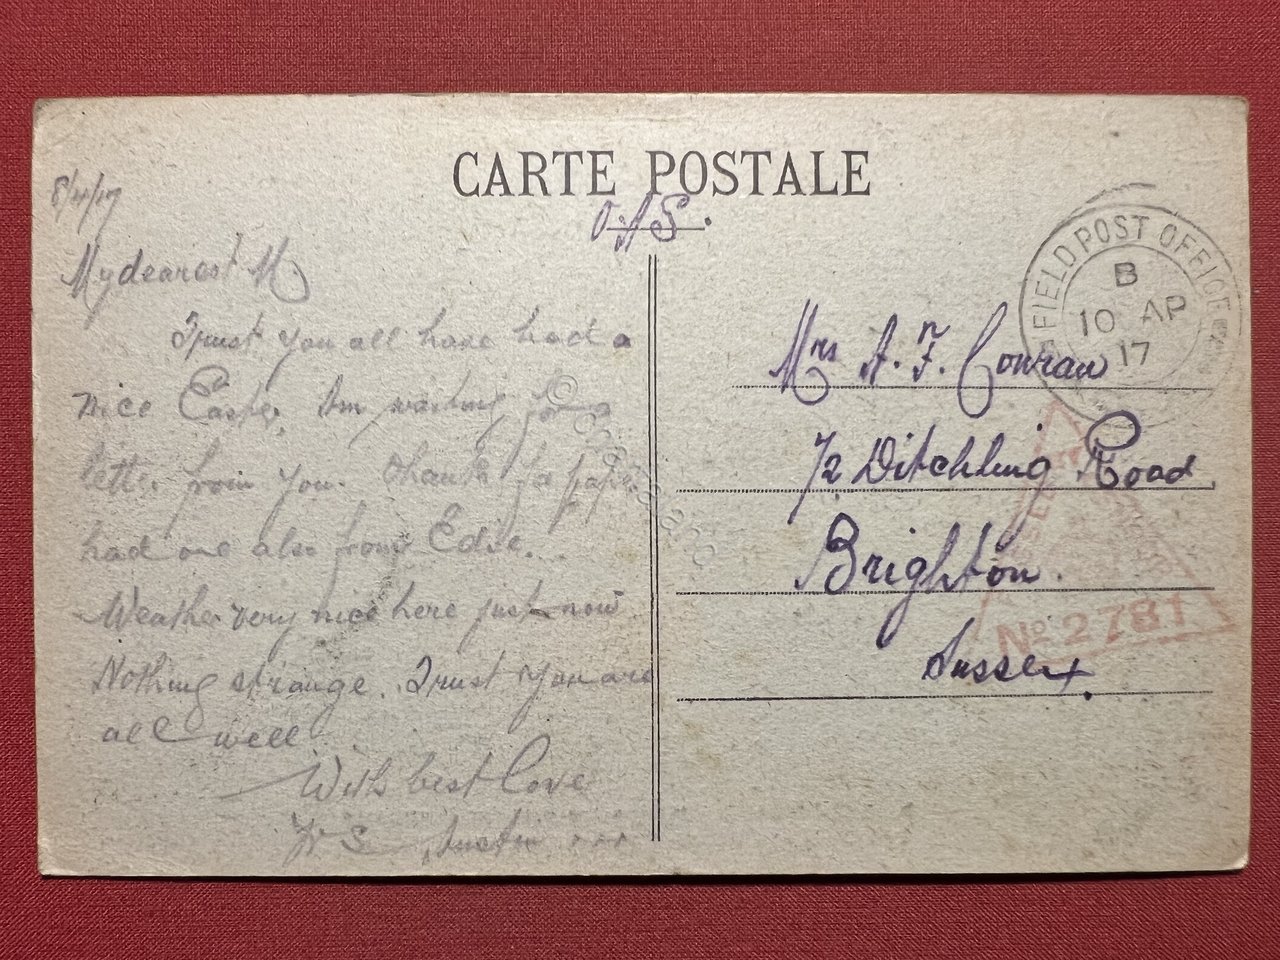 CARTE POSTALE
O.A.S.
8/4/17
My dearest M
Trust you all have had a
nice Easter. Am waiting for a
letter from you. Thanks for paper
had one also from Edie.
Weather very nice here just now
Nothing strange. Trust you are
all well
With best love
FIELD POST OFFICE
B
10 AP
17
Mrs A. F. Conran
72 Ditchling Road
Brighton.
Sussex.
No 2781